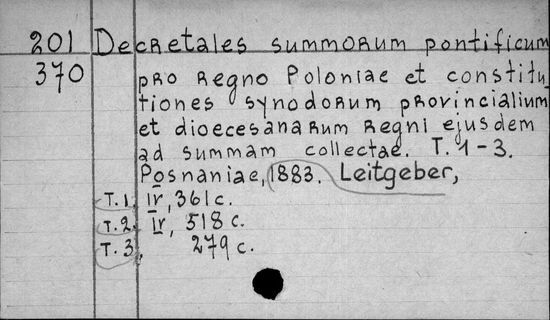 201 Decretales summorum pontificum
370 pro Regno Poloniae et constitu
tiones synodorum provincialium
et dioecesanarum Regni ejusdem
ad summam collectae. T. 1-3.
Posnaniae, 1883. Leitgeber,
T. 1. IV, 361 c.
T. 2. IV, 518 c.
T. 3, 279 c.